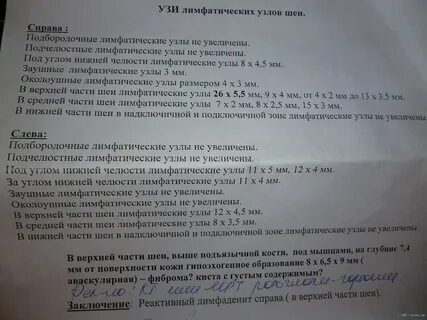 УЗИ лимфатических узлов шеи.
Справа :
Подбородочные лимфатические узлы не увеличены.
Подчелюстные лимфатические узлы не увеличены.
Под углом нижней челюсти лимфатические узлы 8 х 4,5 мм.
Заушные лимфатические узлы 3 мм.
Околоушные лимфатические узлы размером 4 х 3 мм.
В верхней части шеи лимфатические узлы 26 х 5,5 мм, 9 х 4 мм, от 4 х 2 мм до 13 х 3,5 мм.
В средней части шеи лимфатические узлы 7 х 2 мм, 8 х 2,5 мм, 15 х 3 мм.
В нижней части шеи в надключичной и подключичной зоне лимфатические узлы не увеличены.
Слева:
Подбородочные лимфатические узлы не увеличены.
Подчелюстные лимфатические узлы не увеличены.
Под углом нижней челюсти лимфатические узлы 11 х 5 мм, 12 х 4 мм.
За углом нижней челюсти лимфатические узлы 11 х 4 мм.
Заушные лимфатические узлы не увеличены.
Околоушные лимфатические узлы не увеличены.
В верхней части шеи лимфатические узлы 12 х 4,5 мм.
В средней части шеи лимфатические узлы 8 х 3,5 мм.
В нижней части шеи в надключичной и подключичной зоне лимфатические узлы не увеличены.
В верхней части шеи, выше подъязычной кости, под мышцами, на глубине 7,4
мм от поверхности кожи гипоэхогенное образование 8 х 6,5 х 9 мм (
аваскулярная) – фиброма? киста с густым содержимым?
КТ шеи МРТ
Заключение: Реактивный лимфаденит справа ( в верхней части шеи).